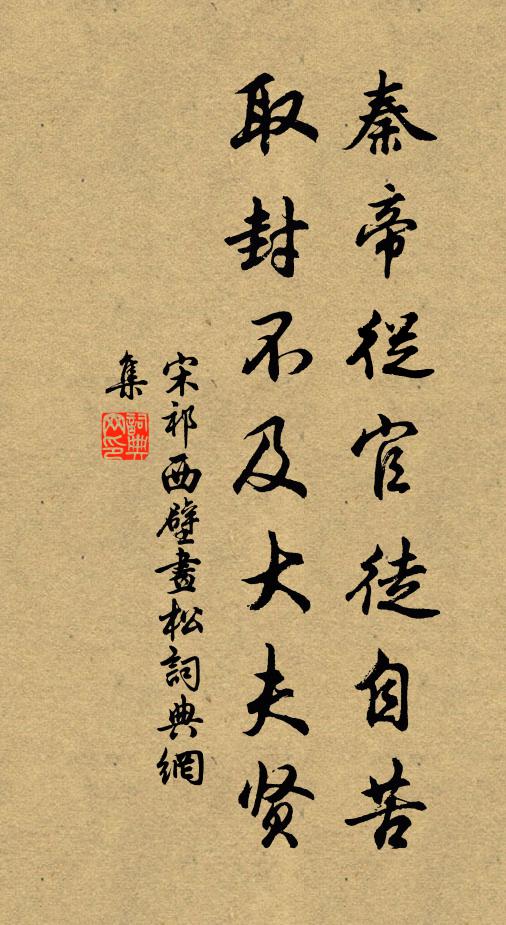 秦帝從官徒自苦
取封不及大夫贤
宋祁西壁畫松詞典網
集
詞典
网印